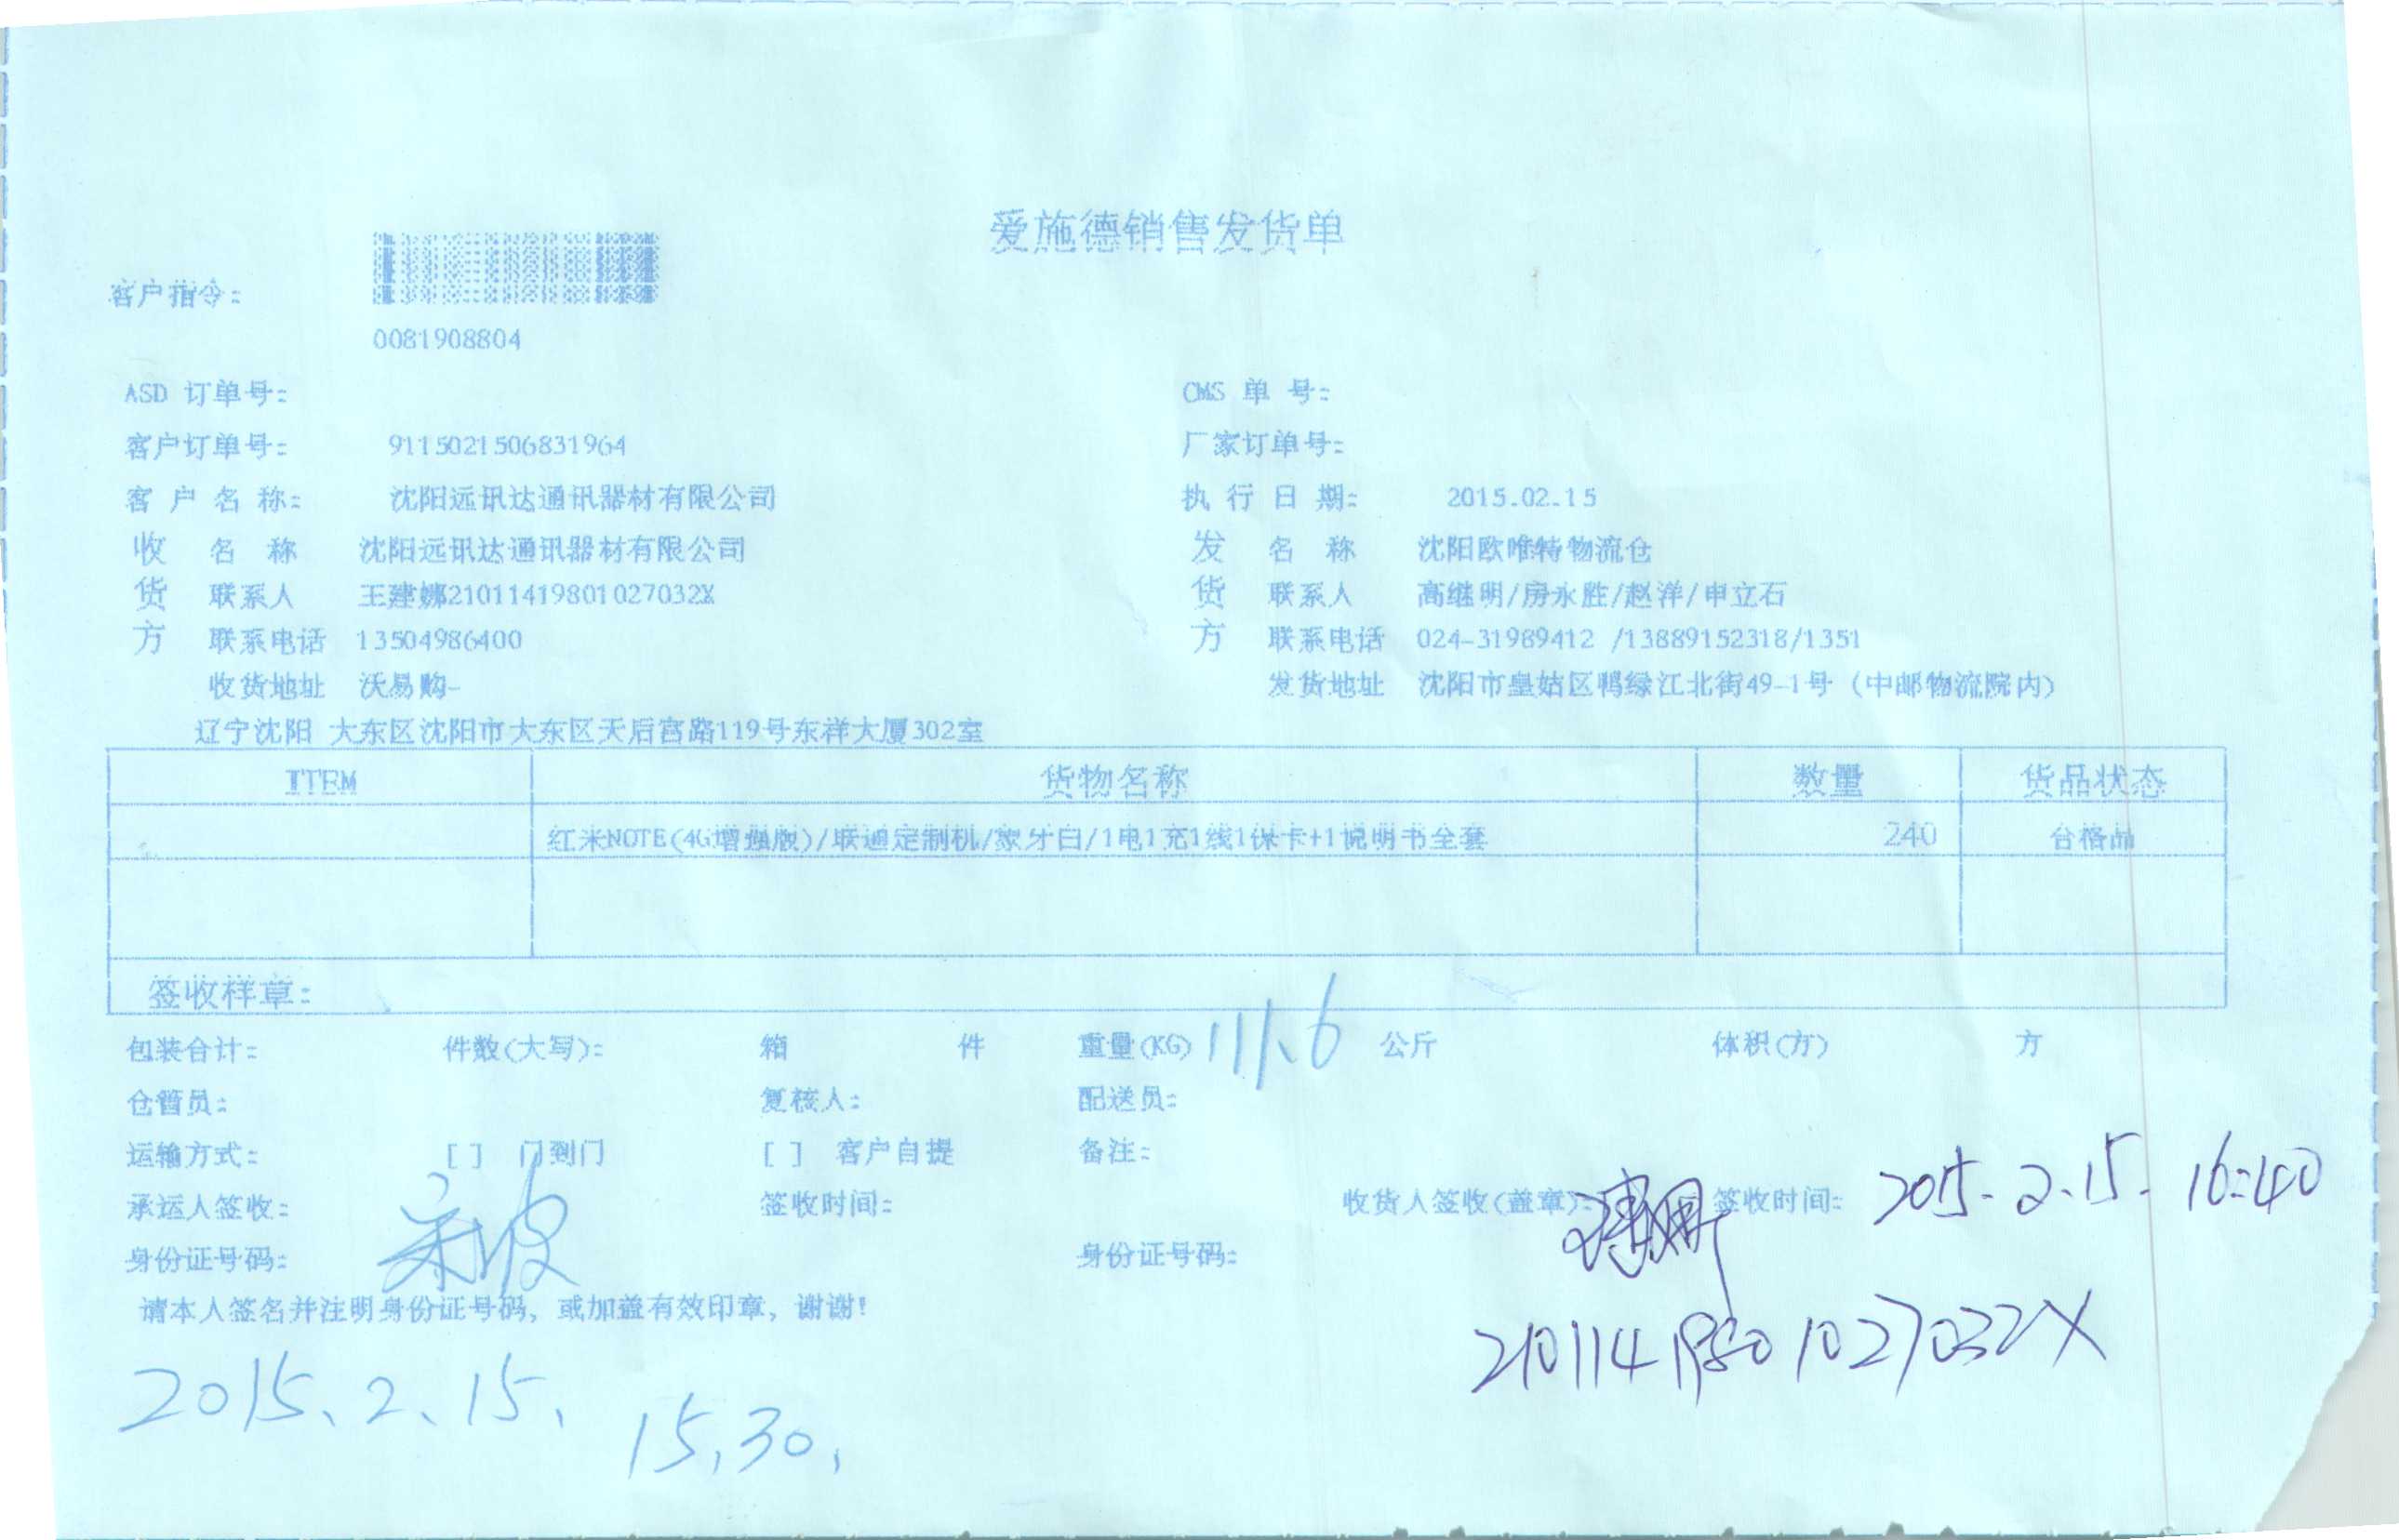 爱施德销售发货单
客户指令:
0081908804
ASD 订单号: CMS 单 号:
客户订单号: 9115021506831964 厂家订单号:
客 户 名 称: 沈阳远讯达通讯器材有限公司 执 行 日 期: 2015.02.15
收 名 称 沈阳远讯达通讯器材有限公司 发 名 称 沈阳欧唯特物流仓
货 联系人 王建娜21011419801027032X 货 联系人 高继明/房永胜/赵洋/申立石
方 联系电话 13504986400 方 联系电话 024-31989412 /13889152318/1351
收货地址 沃易购- 发货地址 沈阳市皇姑区鸭绿江北街49-1号(中邮物流院内)
辽宁沈阳 大东区沈阳市大东区天后宫路119号东祥大厦302室
ITEM 货物名称 数量 货品状态
红米NOTE(4G增强版)/联通定制机/象牙白/1电1充1线1保卡+1说明书全套 240 合格品
签收样章:
包装合计: 件数(大写): 箱 件 重量(KG) 111.6 公斤 体积(方) 方
仓管员: 复核人: 配送员:
运输方式: [ ] 门到门 [ ] 客户自提 备注:
承运人签收: 签收时间: 收货人签收(盖章): 王建娜 签收时间: 2015.2.15. 16:40
身份证号码: 身份证号码:
请本人签名并注明身份证号码, 或加盖有效印章, 谢谢!
21011419801027032X
2015、2、15、 15,30,